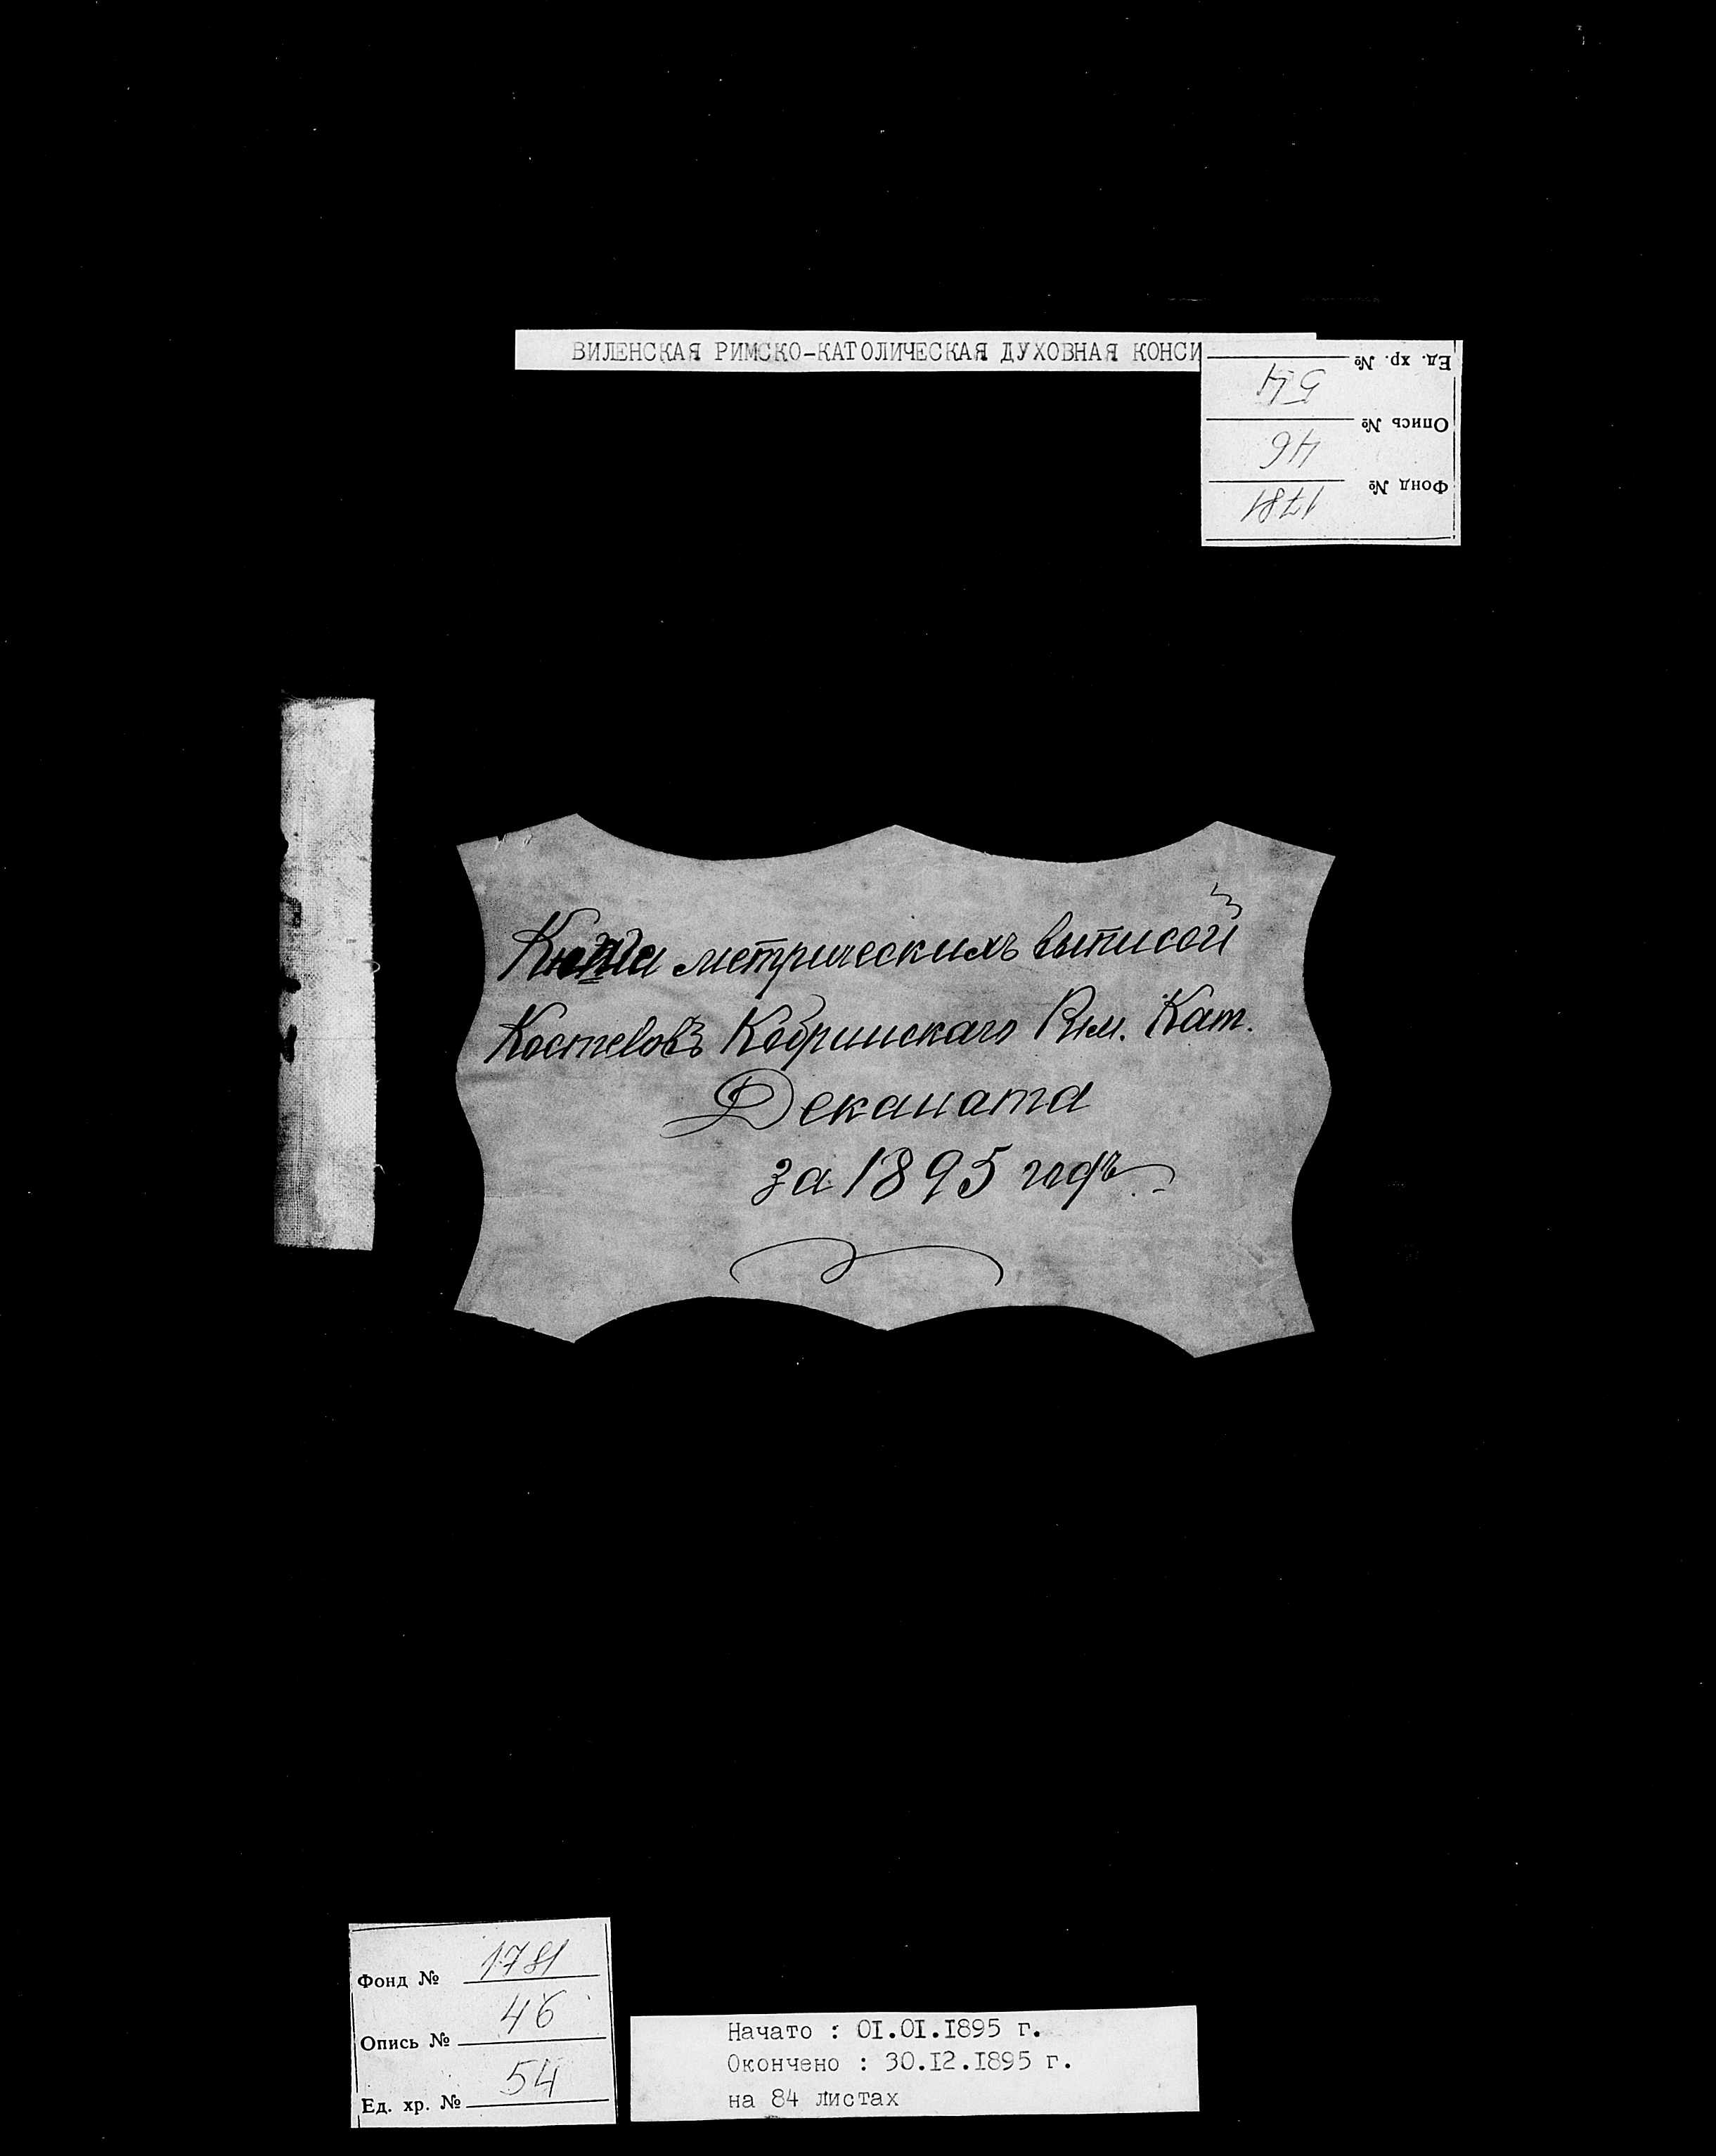 ВИЛЕНСКАЯ РИМСКО-КАТОЛИЧЕСКАЯ ДУХОВНАЯ КОНСИ
Ед. хр. № 54
Опись № 46
Фонд № 1781
Книга метрическихъ выписей
Костеловъ Кобринскаго Рим. Кат.
Деканата
за 1895 годъ.
Фонд № 1781
Опись № 46
Ед. хр. № 54
Начато : 01.01.1895 г.
Окончено : 30.12.1895 г.
на 84 листах